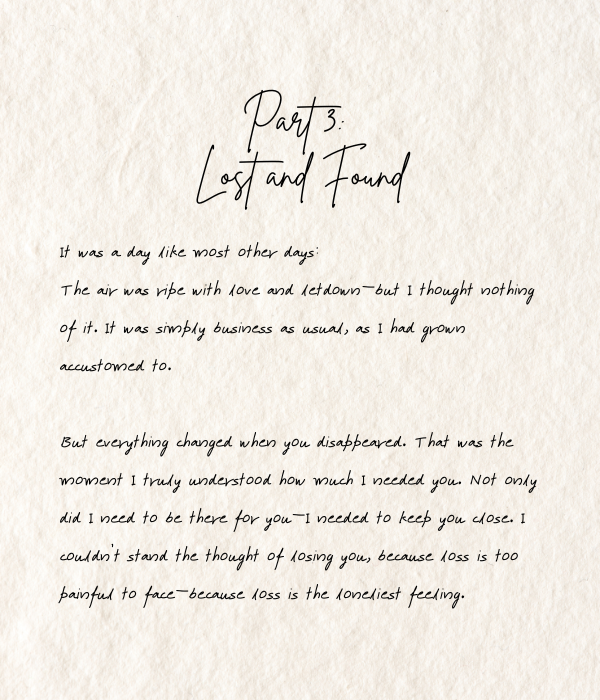 Part 3:
Lost and Found
It was a day like most other days:
The air was ripe with love and letdown—but I thought nothing
of it. It was simply business as usual, as I had grown
accustomed to.
But everything changed when you disappeared. That was the
moment I truly understood how much I needed you. Not only
did I need to be there for you—I needed to keep you close. I
couldn't stand the thought of losing you, because loss is too
painful to face—because loss is the loneliest feeling.